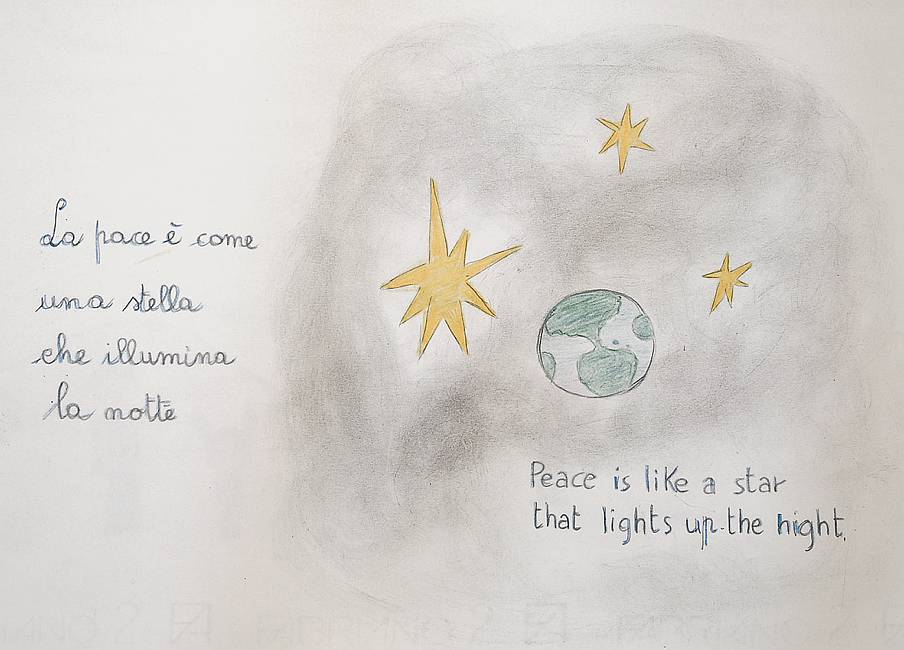 La pace è come
una stella
che illumina
la notte
Peace is like a star
that lights up the night.